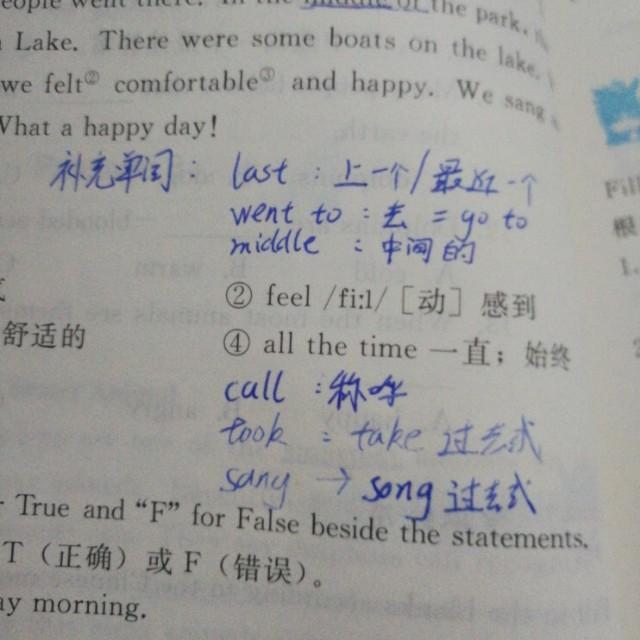 eople went there. In the middle of the park,
Lake. There were some boats on the lake.
we felt② comfortable③ and happy. We sang
What a happy day!
补充单词：last：上一个/最近一个
went to：去 = go to
middle：中间的
② feel /fi:l/［动］感到
舒适的
④ all the time 一直；始终
call：称呼
took：take 过去式
sang → song 过去式
True and “F” for False beside the statements.
T（正确）或 F（错误）。
ay morning.
Fill
根
1.